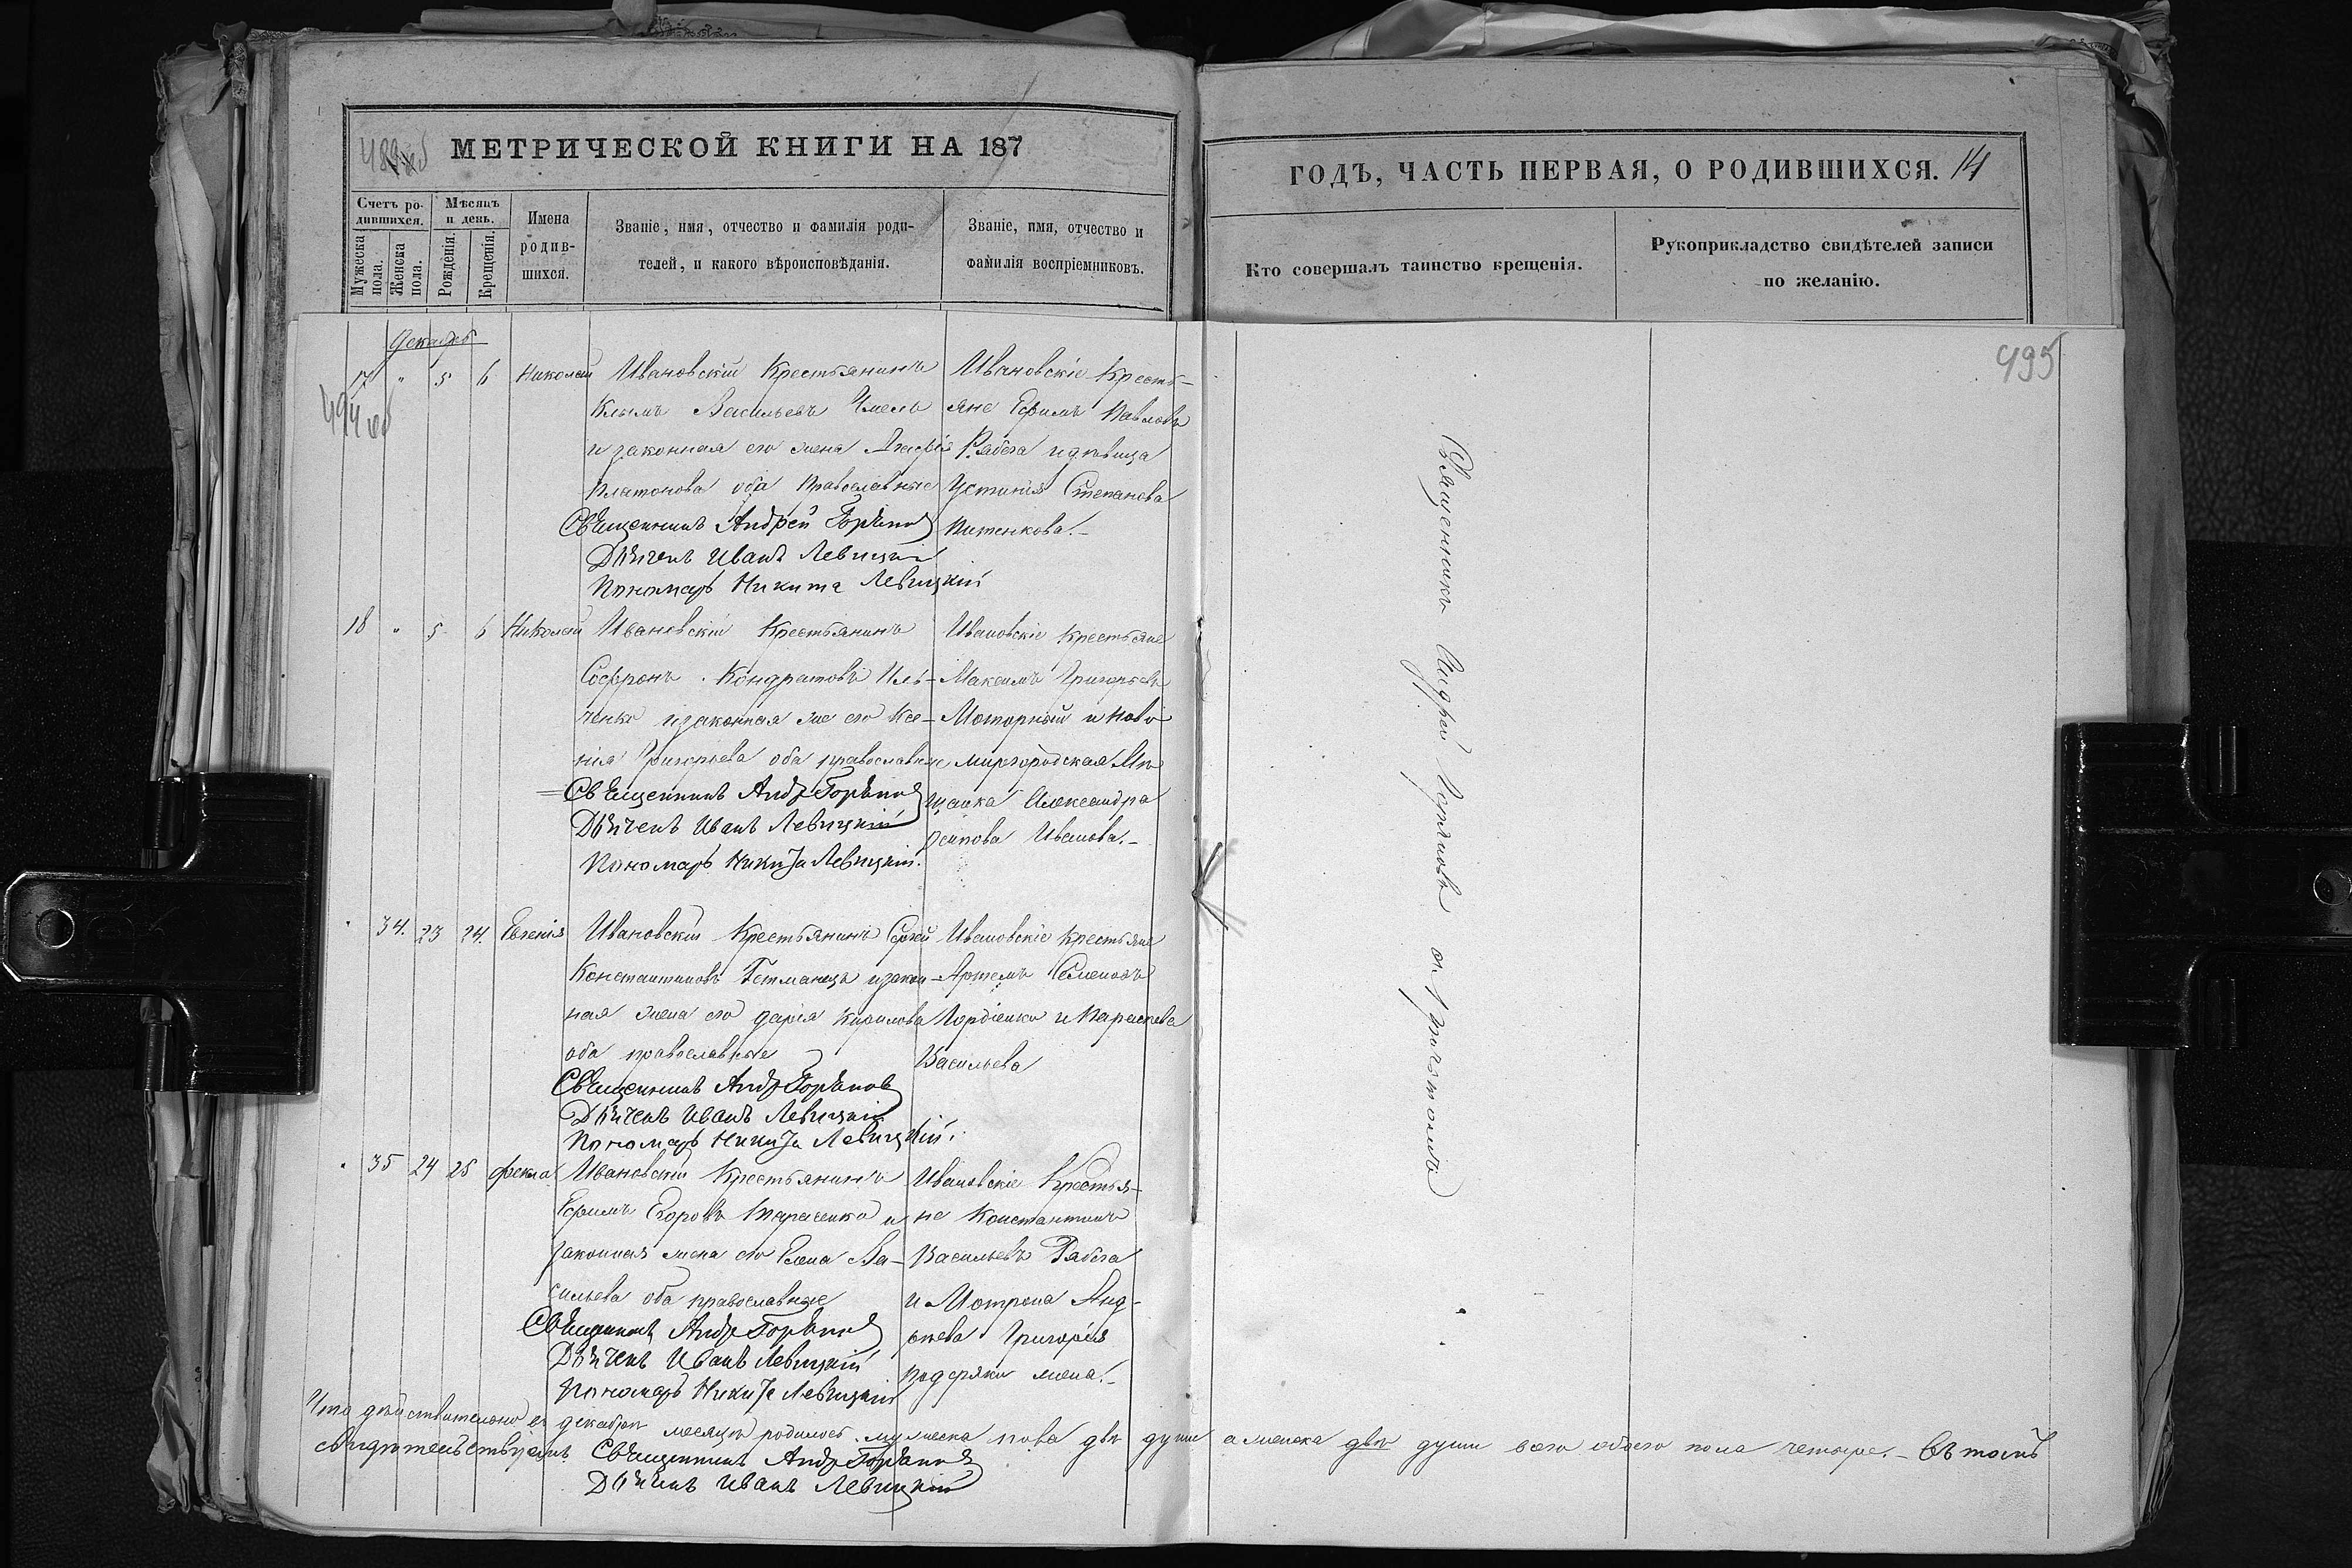 МЕТРИЧЕСКОЙ КНИГИ НА 187
ГОДЪ, ЧАСТЬ ПЕРВАЯ, О РОДИВШИХСЯ. 14
Счетъ ро-
дившихся.
Мужеска
пола.
Женска
пола.
Мѣсяцъ
и день.
Рожденія.
Крещенія.
Имена
родив-
шихся.
Званіе, имя, отчество и фамилія роди-
телей, и какого вѣроисповѣданія.
Званіе, имя, отчество и
фамилія воспріемниковъ.
Кто совершалъ таинство крещенія.
Рукоприкладство свидѣтелей записи
по желанію.
495
494 об
Декабрь
17 " 5 6 Николай
Ивановскій Крестьянинъ
Климъ Васильевъ Чмель
и законная его жена Агафія
Платонова оба православные
Священникъ Андрей Горяновъ
Дьячекъ Иванъ Левицкій
Пономарь Никита Левицкій
Ивановскіе Кресть-
яне Ефимъ Павловъ
Рябега и девица
Устинія Степанова
Питенкова.-
18 " 5 6 Николай
Ивановскій Крестьянинъ
Софронъ Кондратовъ Иль-
ченко и законная же его Ксе-
нія Григорьева оба православные
Священникъ Андр Горяновъ
Дьячекъ Иванъ Левицкій
Пономарь Никита Левицкій.
Ивановскіе крестьяне
Максимъ Григорьевъ
Моторный и ново
миргородская Мѣ
щанка Александра
Осипова Иванова.-
34. 23 24. Евгенія
Ивановскій Крестьянинъ Сергей
Константиновъ Гетманецъ и закон-
ная жена его Дарія Кирилова
оба православные
Священникъ Андр Горяновъ
Дьячекъ Иванъ Левицкій
Пономарь Никита Левицкій.
Ивановскіе крестьяне
Артемъ Семеновъ
Гордіенко и Параскева
Васильева
35 24 25 Фекла
Ивановскій Крестьянинъ
Ефимъ Егоровъ Тарасенко и
законная жена его Елена Ва-
сильева оба православные
Священникъ Андр Горяновъ
Дьячекъ Иванъ Левицкій
Пономарь Никита Левицкій
Ивановскіе Крестья-
не Константинъ
Васильевъ Рябега
и Мотрона Анд-
Григорія
жена.-
Священникъ Андрей Горяновъ съ причтомъ
Что действительно въ декабрѣ месяцѣ родилось мужеска пола двѣ души а женска двѣ души всего обоего пола четыре.- Въ томъ
свидѣтельствуемъ Священникъ Андр Горяновъ
Дьячекъ Иванъ Левицкій